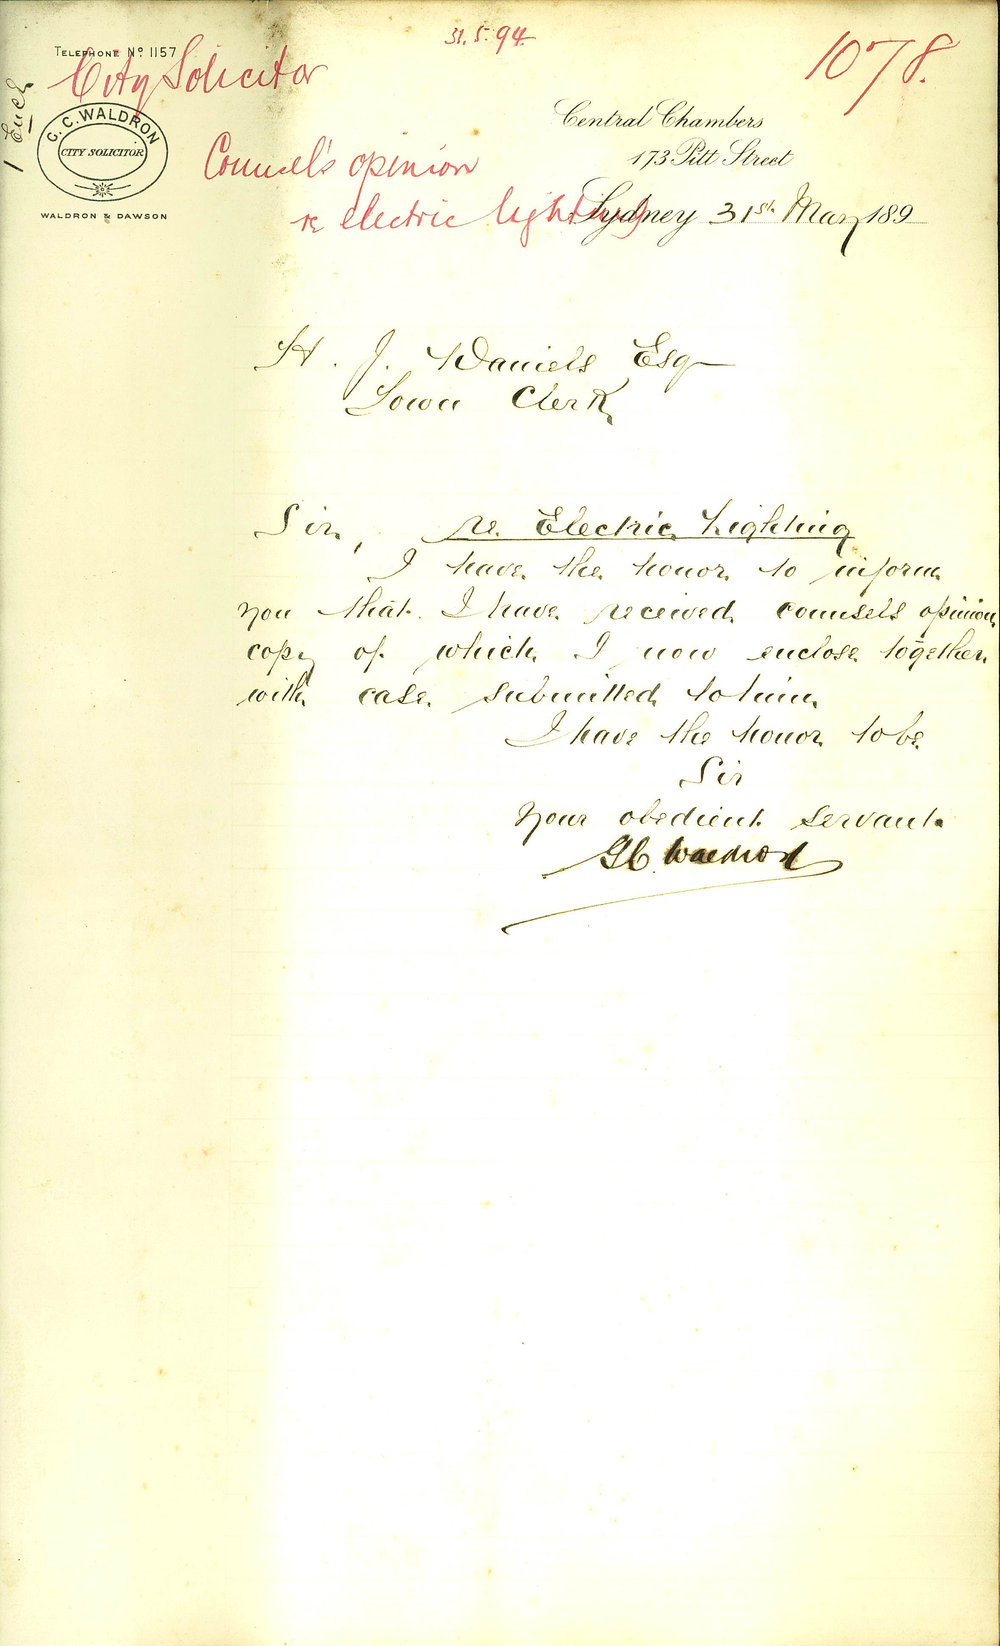 31.5.94
1078.
TELEPHONE No. 1157
City Solicitor
1 Encl
G. C. WALDRON
CITY SOLICITOR
WALDRON & DAWSON
Central Chambers
173 Pitt Street
Counsel's opinion
re electric lighting
Sydney 31st May 189
H. J. Daniels Esq
Town Clerk
Sir, re Electric Lighting
I have the honor to inform
you that I have received counsels opinion
copy of which I now enclose together
with case submitted to him
I have the honor to be
Sir
Your obedient servant
G C Waldron